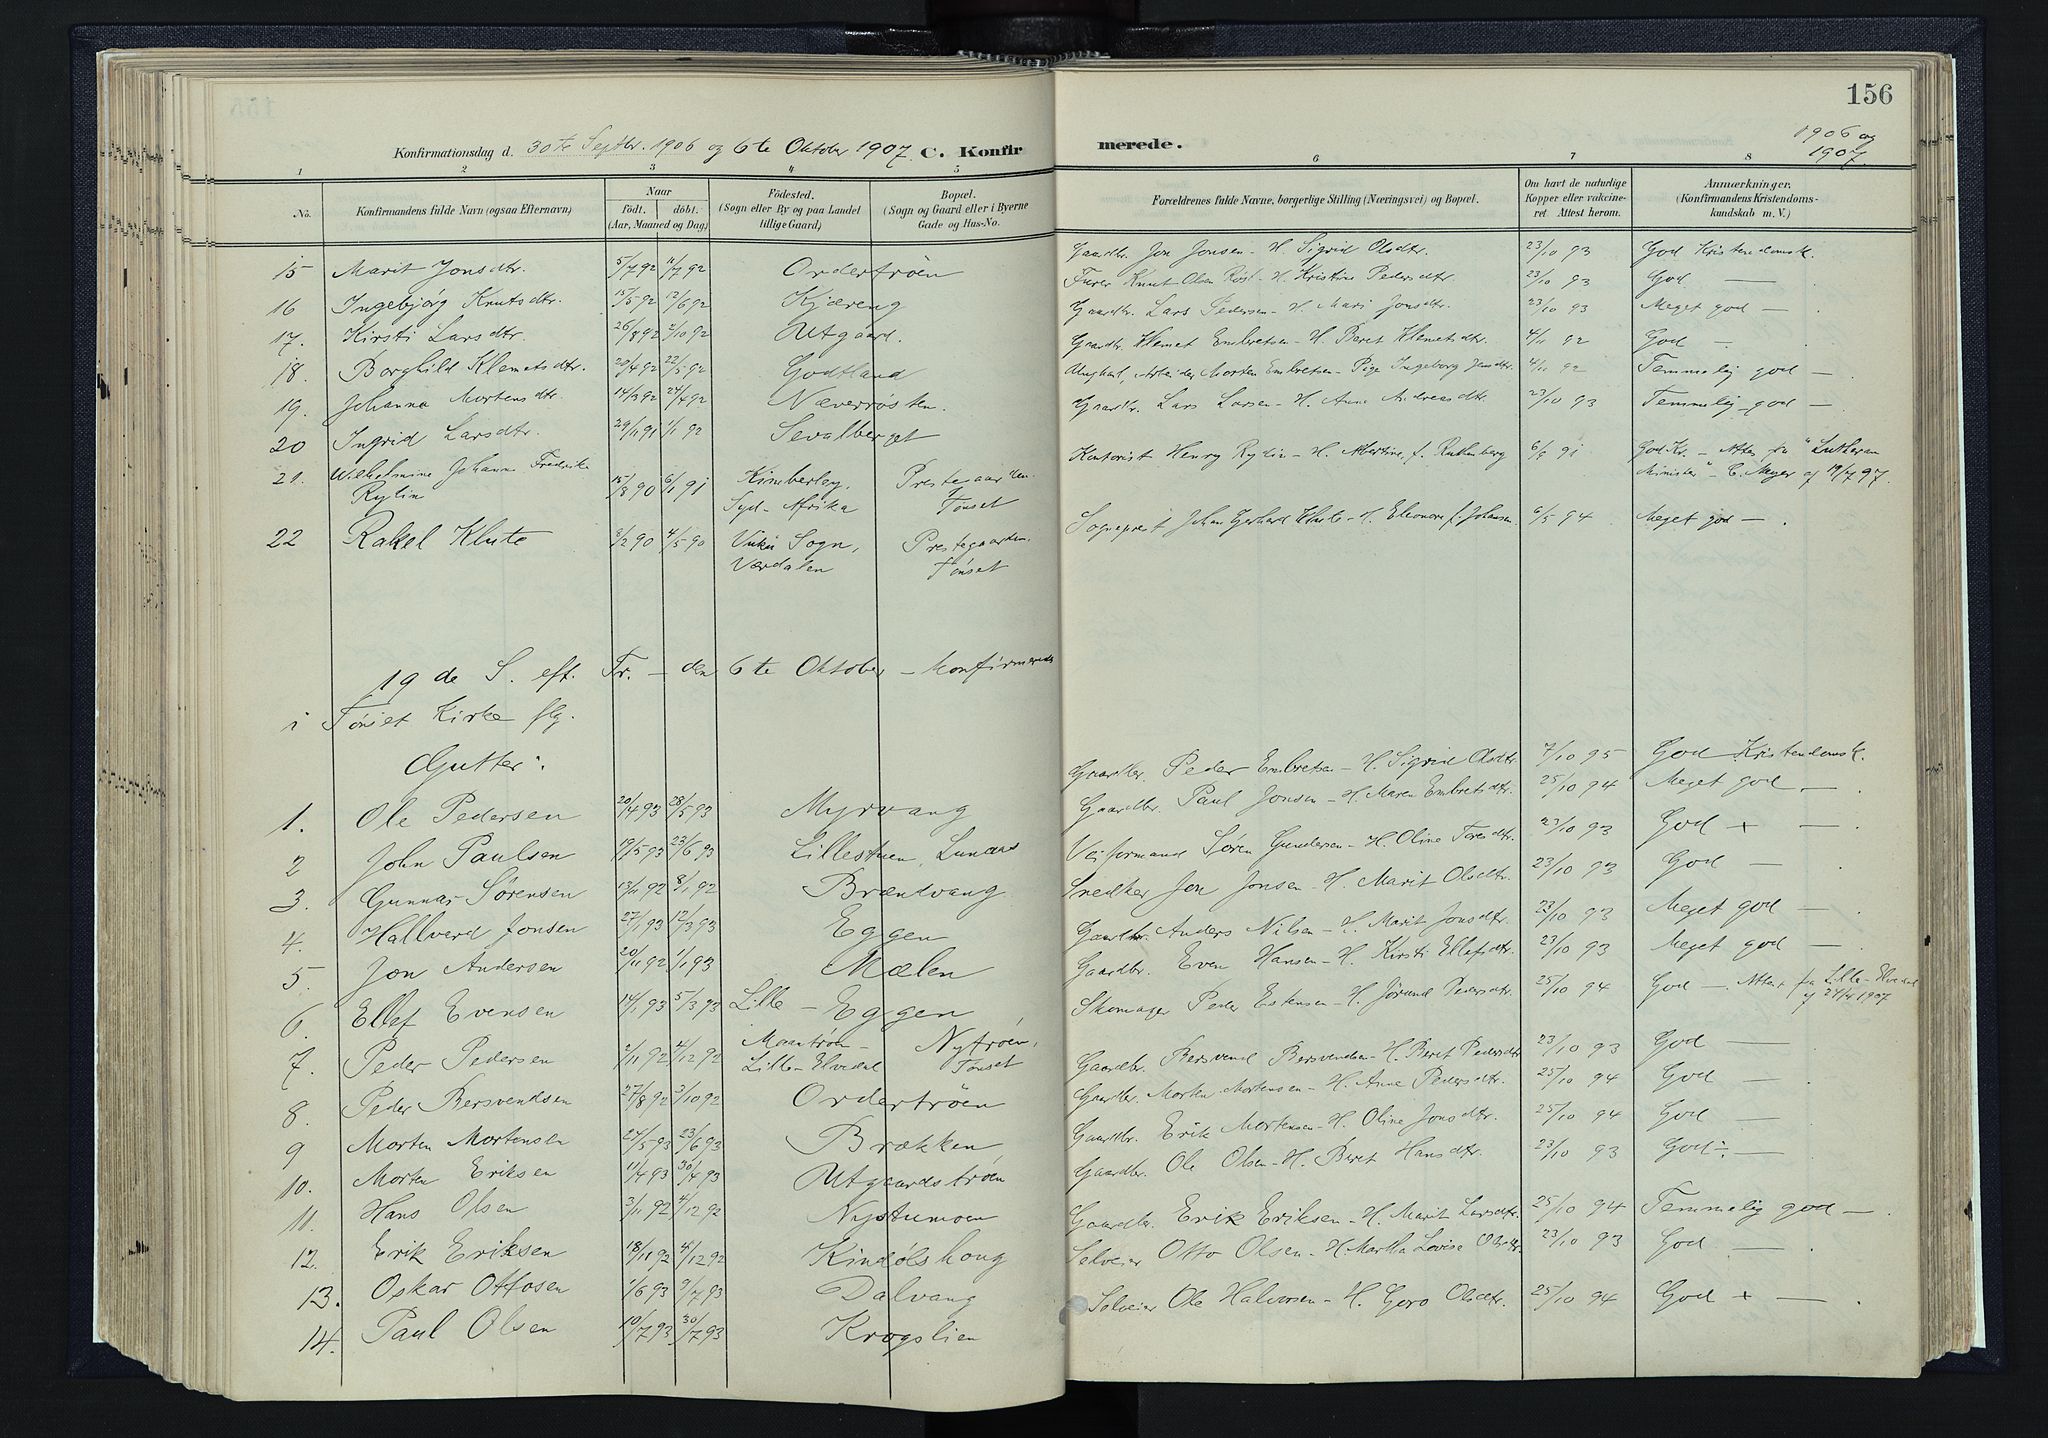 156
Konfirmationsdag d. 30te Septbr. 1906 og 6te Oktober 1907. C. Konfirmerede.
1906 og
1907
1 2 3 4 5 6 7 8
No.
Konfirmandens fulde Navn (ogsaa Efternavn)
Naar
født. døbt.
(Aar, Maaned og Dag)
Fødested.
(Sogn eller By og paa Landet
tillige Gaard)
Bopæl.
(Sogn og Gaard eller i Byerne
Gade og Hus-No.
Forældrenes fulde Navne, borgerlige Stilling (Næringsvei) og Bopæl.
Om havt de naturlige
Kopper eller vakcine-
ret. Attest herom.
Anmærkninger.
(Konfirmandens Kristendoms-
kundskab m. V.)
15 Marit Jonsdtr. 5/7 92 11/7 92 Ordertrøen Gaardbr. Jon Jonsen - H. Sigrid Olsdtr. 23/10 93 God Kristendomsk.
16 Ingebjørg Knutsdtr. 15/5 92 12/6 92 Kjæreng Furer Knut Olsen Røst - H. Kristine Pedersdtr. 23/10 93 God —
17. Kirsti Larsdtr. 26/8 92 2/10 92 Utgaard. Gaardbr. Lars Pedersen - H. Mari Jonsdtr. 23/10 93 Meget god —
18. Borghild Klemetsdtr. 29/4 92 22/5 92 Godtland Gaardbr. Klemet Embretsen - H. Beret Klemetsdtr. 4/11 92 God —
19. Johanna Mortensdtr. 14/3 92 24/4 92 Næverrøsten. Ungkarl, Arbeider Morten Embretsen - Pige Ingeborg Jonsdtr. 4/11 92 Temmelig god —
20 Ingrid Larsdtr. 29/11 91 1/1 92 Sevalberget Gaardbr. Lars Larsen - H. Anne Andreasdtr. 23/10 93 Temmelig god —
21. Wilhelmine Johanne Fredrika
Rylin 15/8 90 6/1 91 Kimberley, Prestegaarden. Kontorist Henry Rylin - H. Albertine, f. 6/9 91 God Kr. - Attest fra "Lutheran
Syd-Afrika Tønset Minister" - C. Meyer af 19/7 97.
22 Rakel Klute 3/2 90 4/5 90 Vuku Sogn, Prestegaarden. Sogneprest Johan Gerhard Klute - H. Eleonore f. Johansen. 6/5 94 Meget god —
Værdalen Tønset
19de S. eft. Tr. - den 6te Oktober - konfirmerede
i Tønset Kirke flg.
Gutter:
1. Ole Pedersen 20/4 93 28/5 93 Myrvang Gaardbr. Peder Embretsen - H. Sigrid Olsdtr. 7/10 95 God Kristendomsk.
2 John Paulsen 19/5 93 23/6 93 Lillestuen, Lunaas Gaardbr. Paul Jonsen - H. Maren Embretsdtr. 25/10 94 Meget god —
3. Gunnar Sørensen 13/11 92 8/1 92 Brændvang Veiformand Søren Gundersen - H. Oline Toresdtr. 23/10 93 God + —
4. Hallvard Jonsen 27/1 93 12/3 93 Eggen Snedker Jon Jonsen - H. Marit Olsdtr. 23/10 93 God —
5. Jon Andersen 20/11 92 1/1 93 Mælen Gaardbr. Anders Nilsen - H. Marit Jonsdtr. 23/10 93 Meget god —
6. Ellef Evensen 14/1 93 5/3 93 Lille-Eggen Gaardbr. Even Hansen - H. Kirsti Ellefsdtr. 23/10 93 Meget god —
7. Peder Pedersen 2/11 92 4/12 92 Moantrøen - Nytrøen, Skomager Peder Estensen - H. Jørund Pedersdtr. 25/10 94 God —. Attest fra Lille-Elvedal
Lille-Elvedal Tønset af 24/4 1907
8. Peder Bersvendsen 27/8 92 3/10 92 Ordertrøen Gaardbr. Bersvend Bersvendsen - H. Beret Pedersdtr 23/10 93 God —
9 Morten Mortensen 24/5 93 23/6 93 Brækken Gaardbr. Morten Mortensen - H. Anne Pedersdtr. 25/10 94 God —
10. Morten Eriksen 11/4 93 30/4 93 Utgaardstrøen Gaardbr. Erik Mortensen - H. Oline Jonsdtr. 25/10 94 God —
11. Hans Olsen 3/11 92 4/12 92 Nystumoen Gaardbr. Ole Olsen - H. Beret Hansdtr. 23/10 93 God ÷ —
12. Erik Eriksen 18/11 92 4/12 92 Kindølshoug Gaardbr. Erik Eriksen - H. Marit Larsdtr. 25/10 94 Temmelig god —
13. Oskar Ottosen 1/6 93 9/7 93 Dalvang Selveier Otto Olsen - H. Martha Lovise Olsdtr. 23/10 93 God —
14. Paul Olsen 10/7 93 30/7 93 Krogslien Selveier Ole Halvorsen - H. Goro Olsdtr. 25/10 94 God + —